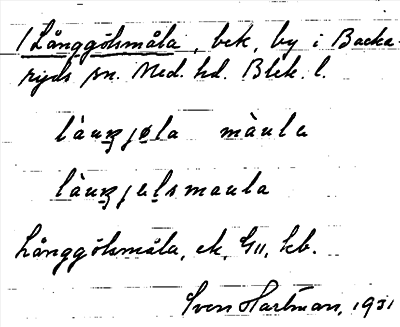 1 Långgölsmåla, bek, by i Backa-
ryds sn. Med. hd. Blek. l.
làuŋjøla màula
làuŋjælsmaula
Långgölsmåla, ek, G11, kb.
Sven Hartman, 1931